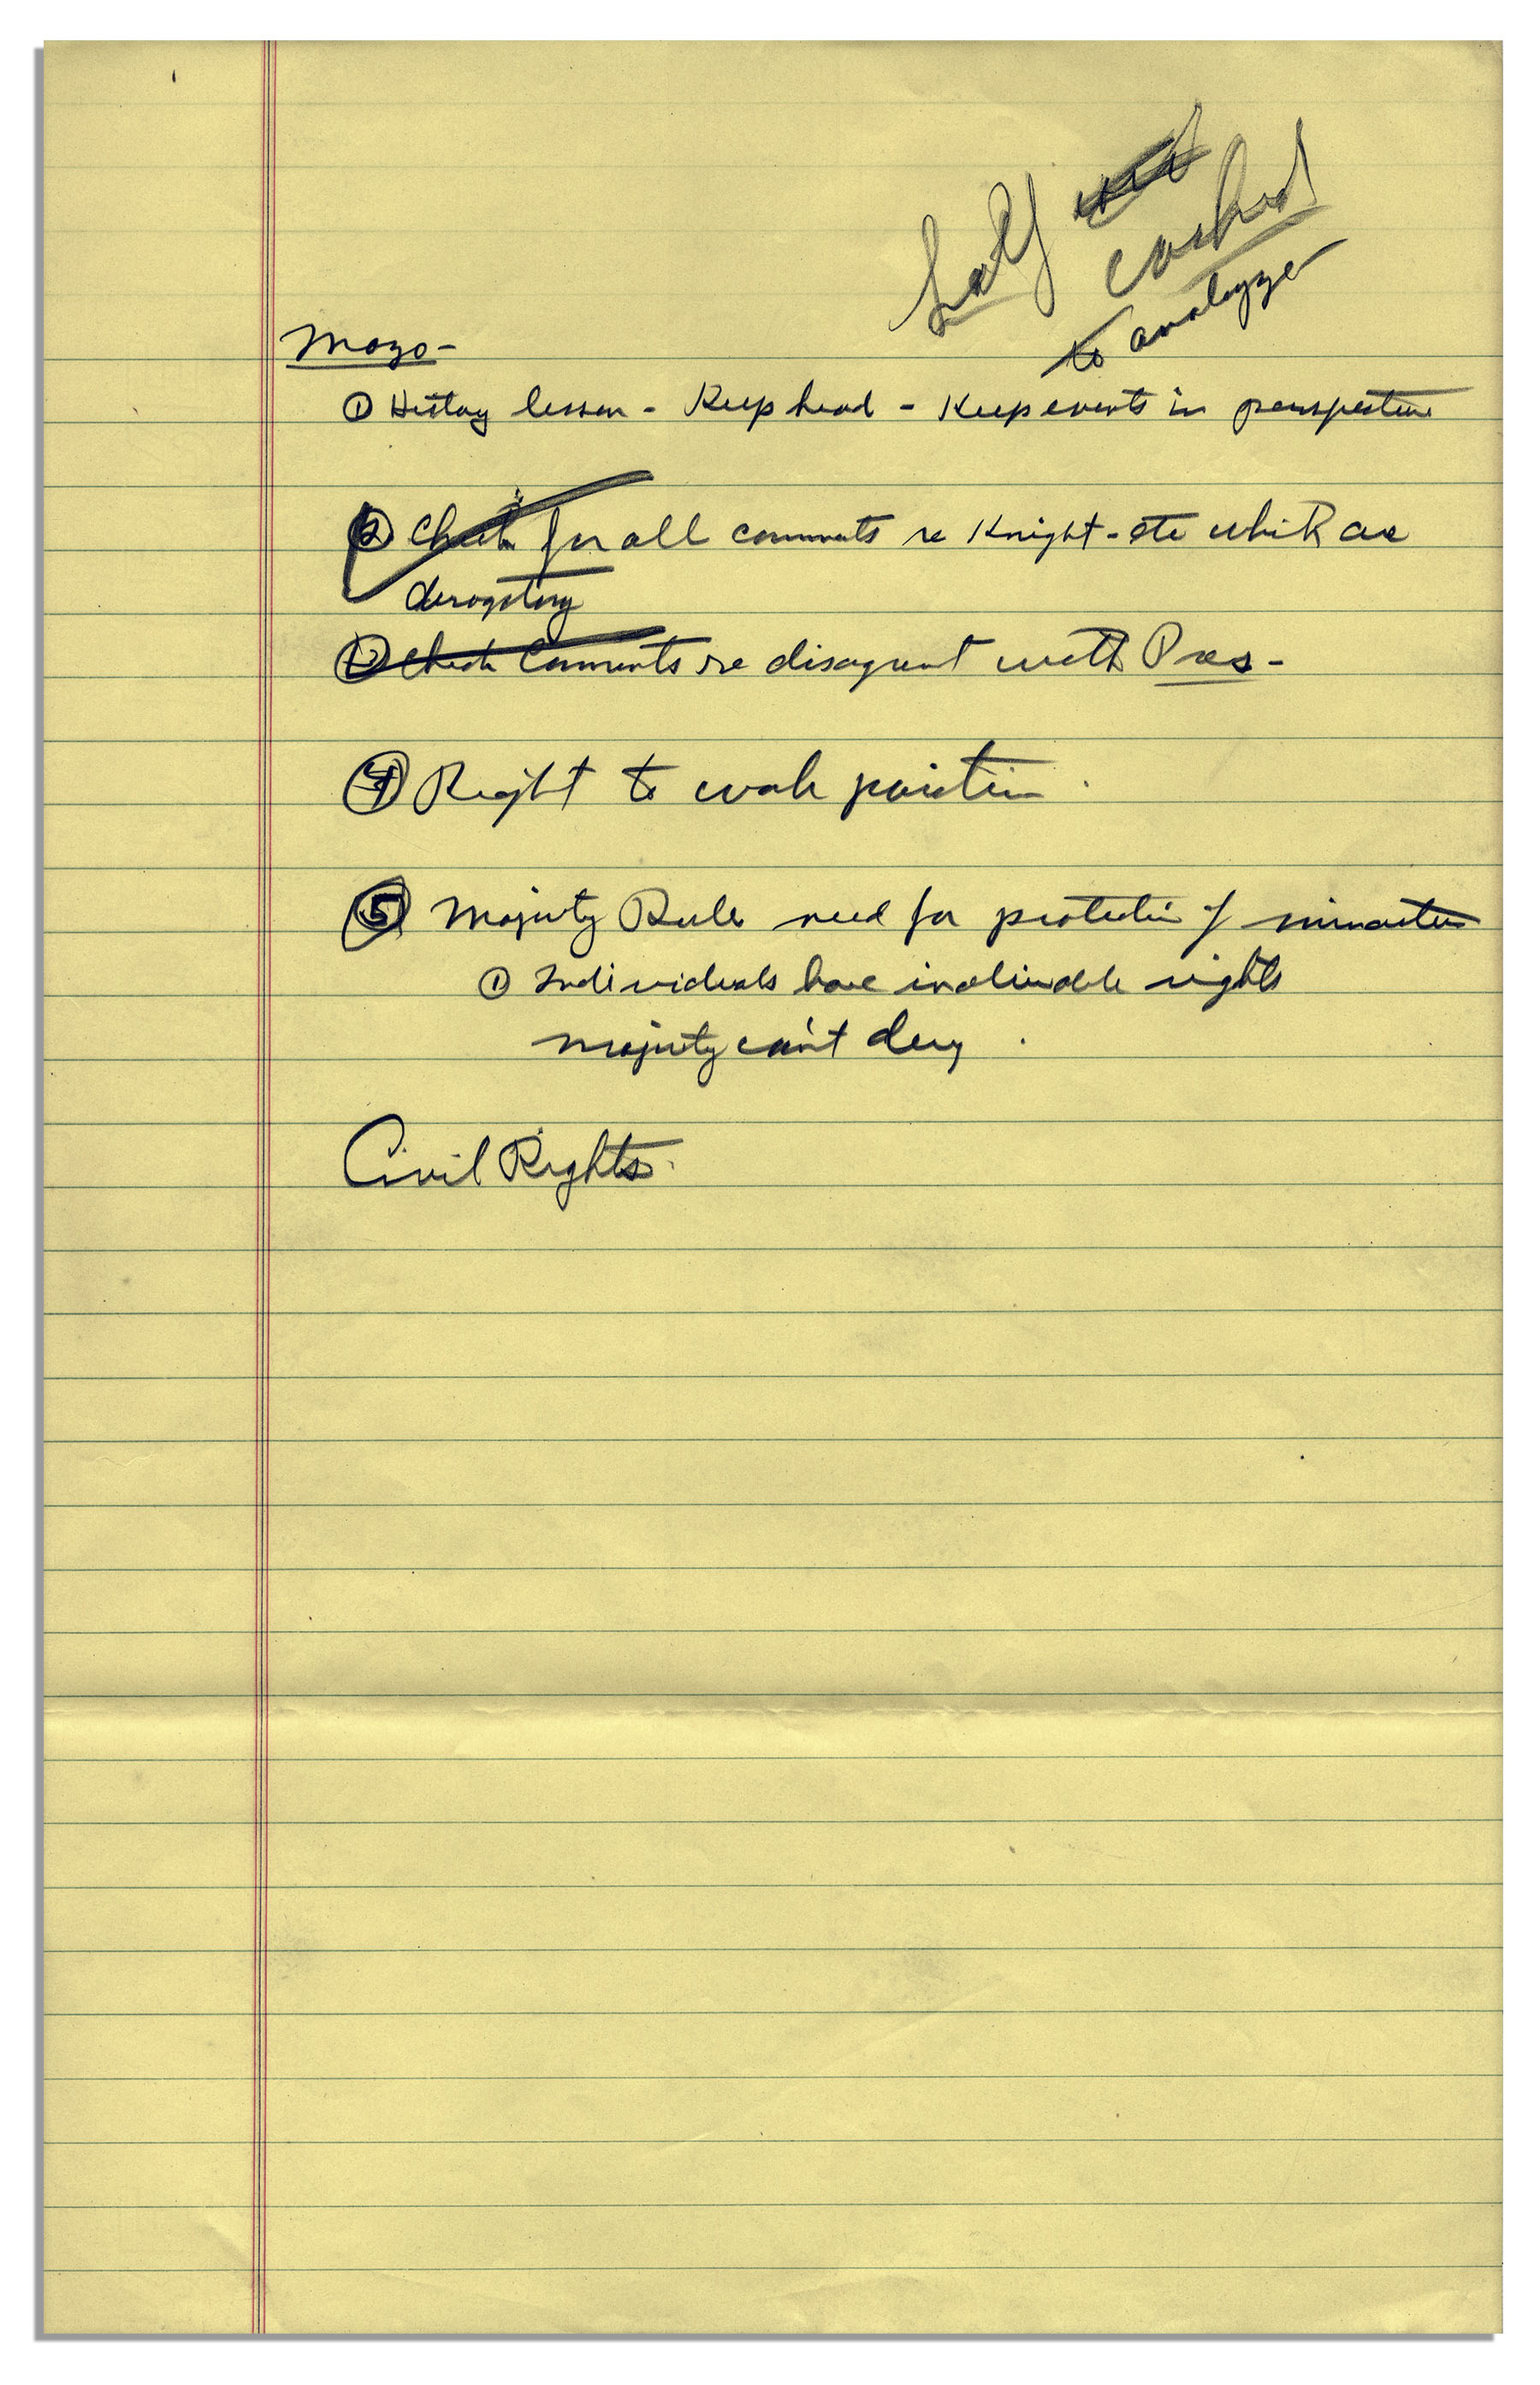 half
cocked
to analyze
Mazo-
① History lesson - Keep head - Keep events in perspective
② Check for all comments re Knight - etc which are
derogatory
③ Check Comments re disagreement with Pres -
④ Right to work position
⑤ Majority Rule need for protection of minorities
① Individuals have inalienable rights
majority can't deny.
Civil Rights.